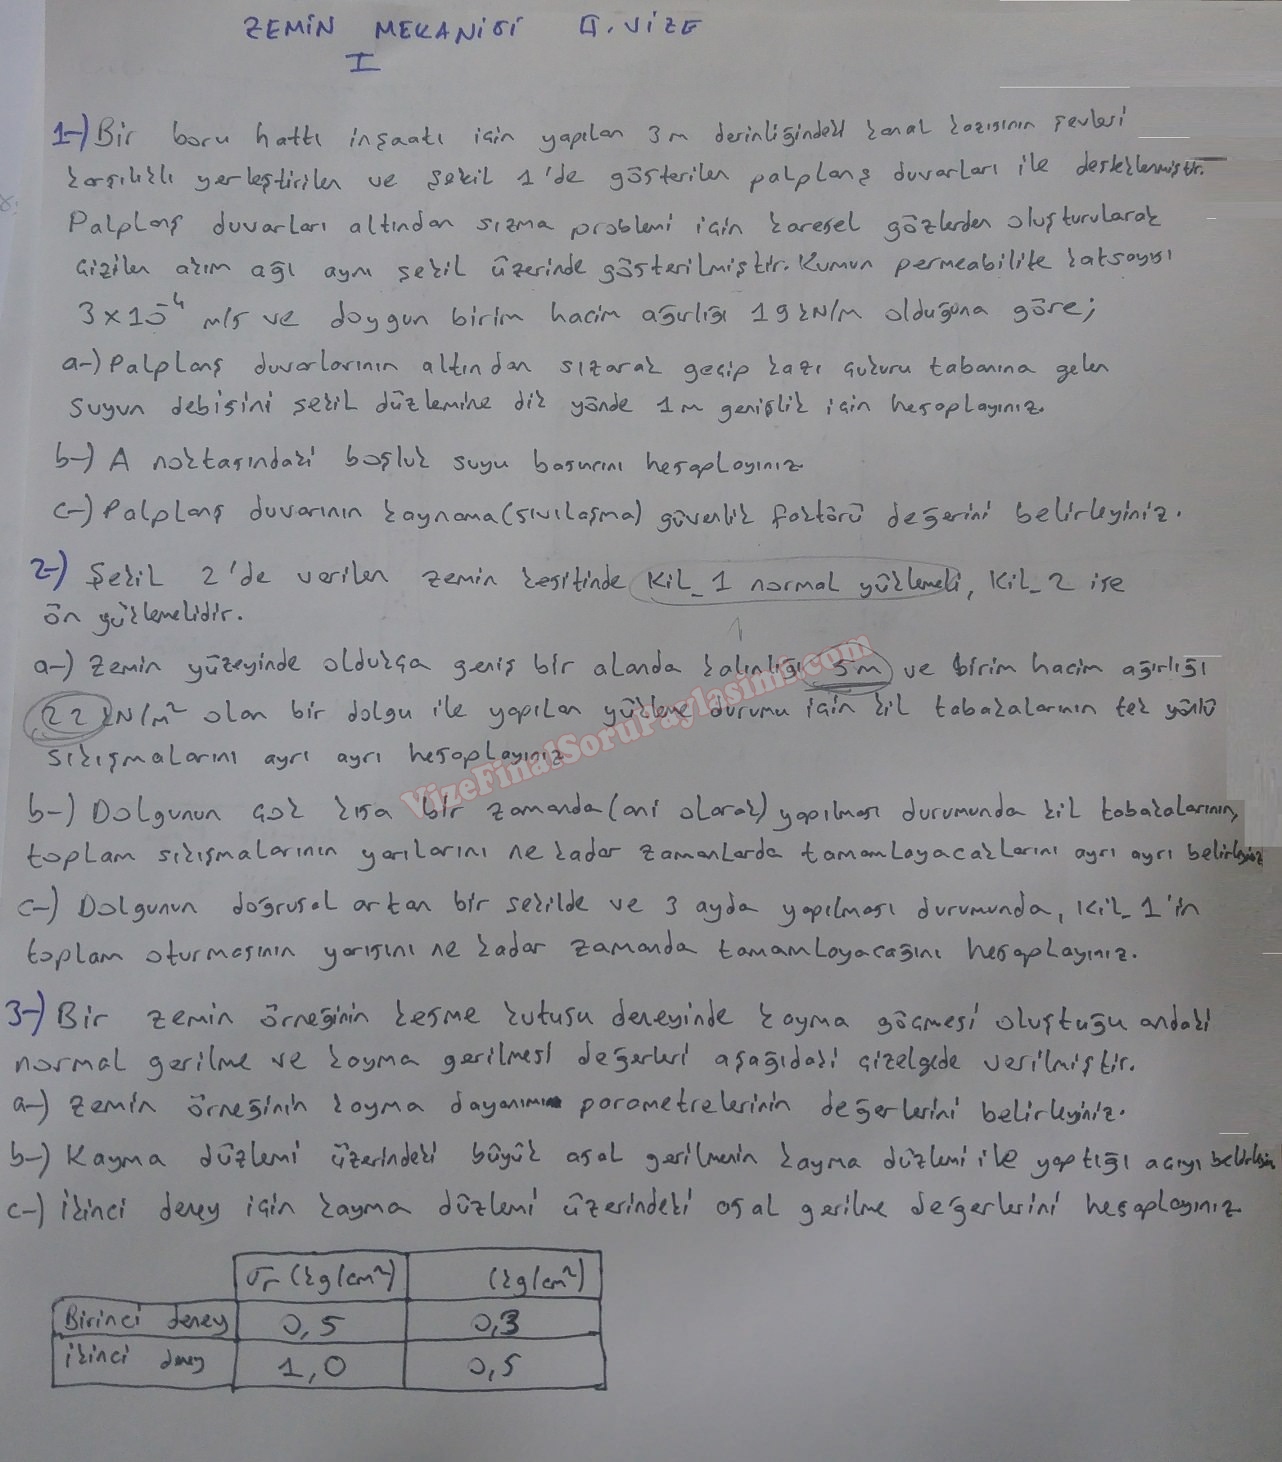 ZEMİN MEKANİĞİ II. VİZE
I
1-) Bir boru hattı inşaatı için yapılan 3 m derinliğindeki kanal kazısının şevleri
karşılıklı yerleştirilen ve şekil 1'de gösterilen palplanş duvarları ile desteklenmiştir.
Palplanş duvarları altından sızma problemi için karesel gözlerden oluşturularak
çizilen akım ağı aynı şekil üzerinde gösterilmiştir. Kumun permeabilite katsayısı
3x10⁻⁴ m/s ve doygun birim hacim ağırlığı 19 kN/m olduğuna göre;
a-) Palplanş duvarlarının altından sızarak geçip kazı çukuru tabanına gelen
suyun debisini şekil düzlemine dik yönde 1 m genişlik için hesaplayınız.
b-) A noktasındaki boşluk suyu basıncını hesaplayınız
c-) Palplanş duvarının kaynama (sıvılaşma) güvenlik faktörü değerini belirleyiniz.
2-) Şekil 2'de verilen zemin kesitinde Kil_1 normal yüklemeli, Kil_2 ise
ön yüklemelidir.
a-) Zemin yüzeyinde oldukça geniş bir alanda kalınlığı 5m ve birim hacim ağırlığı
22 kN/m² olan bir dolgu ile yapılan yükleme durumu için kil tabakalarının tek yönlü
sıkışmalarını ayrı ayrı hesaplayınız
VizeFinalSoruPaylasimi.com
b-) Dolgunun çok kısa bir zamanda (ani olarak) yapılması durumunda kil tabakalarının,
toplam sıkışmalarının yarılarını ne kadar zamanlarda tamamlayacaklarını ayrı ayrı belirleyiniz
c-) Dolgunun doğrusal artan bir şekilde ve 3 ayda yapılması durumunda, Kil_1'in
toplam oturmasının yarısını ne kadar zamanda tamamlayacağını hesaplayınız.
3-) Bir zemin örneğinin kesme kutusu deneyinde kayma göçmesi oluştuğu andaki
normal gerilme ve kayma gerilmesi değerleri aşağıdaki çizelgede verilmiştir.
a-) Zemin örneğinin kayma dayanımı parametrelerinin değerlerini belirleyiniz.
b-) Kayma düzlemi üzerindeki büyük asal gerilmenin kayma düzlemi ile yaptığı açıyı belirleyin
c-) İkinci deney için kayma düzlemi üzerindeki asal gerilme değerlerini hesaplayınız.
(kg/cm²) (kg/cm²)
Birinci deney 0,5 0,3
İkinci deney 1,0 0,5